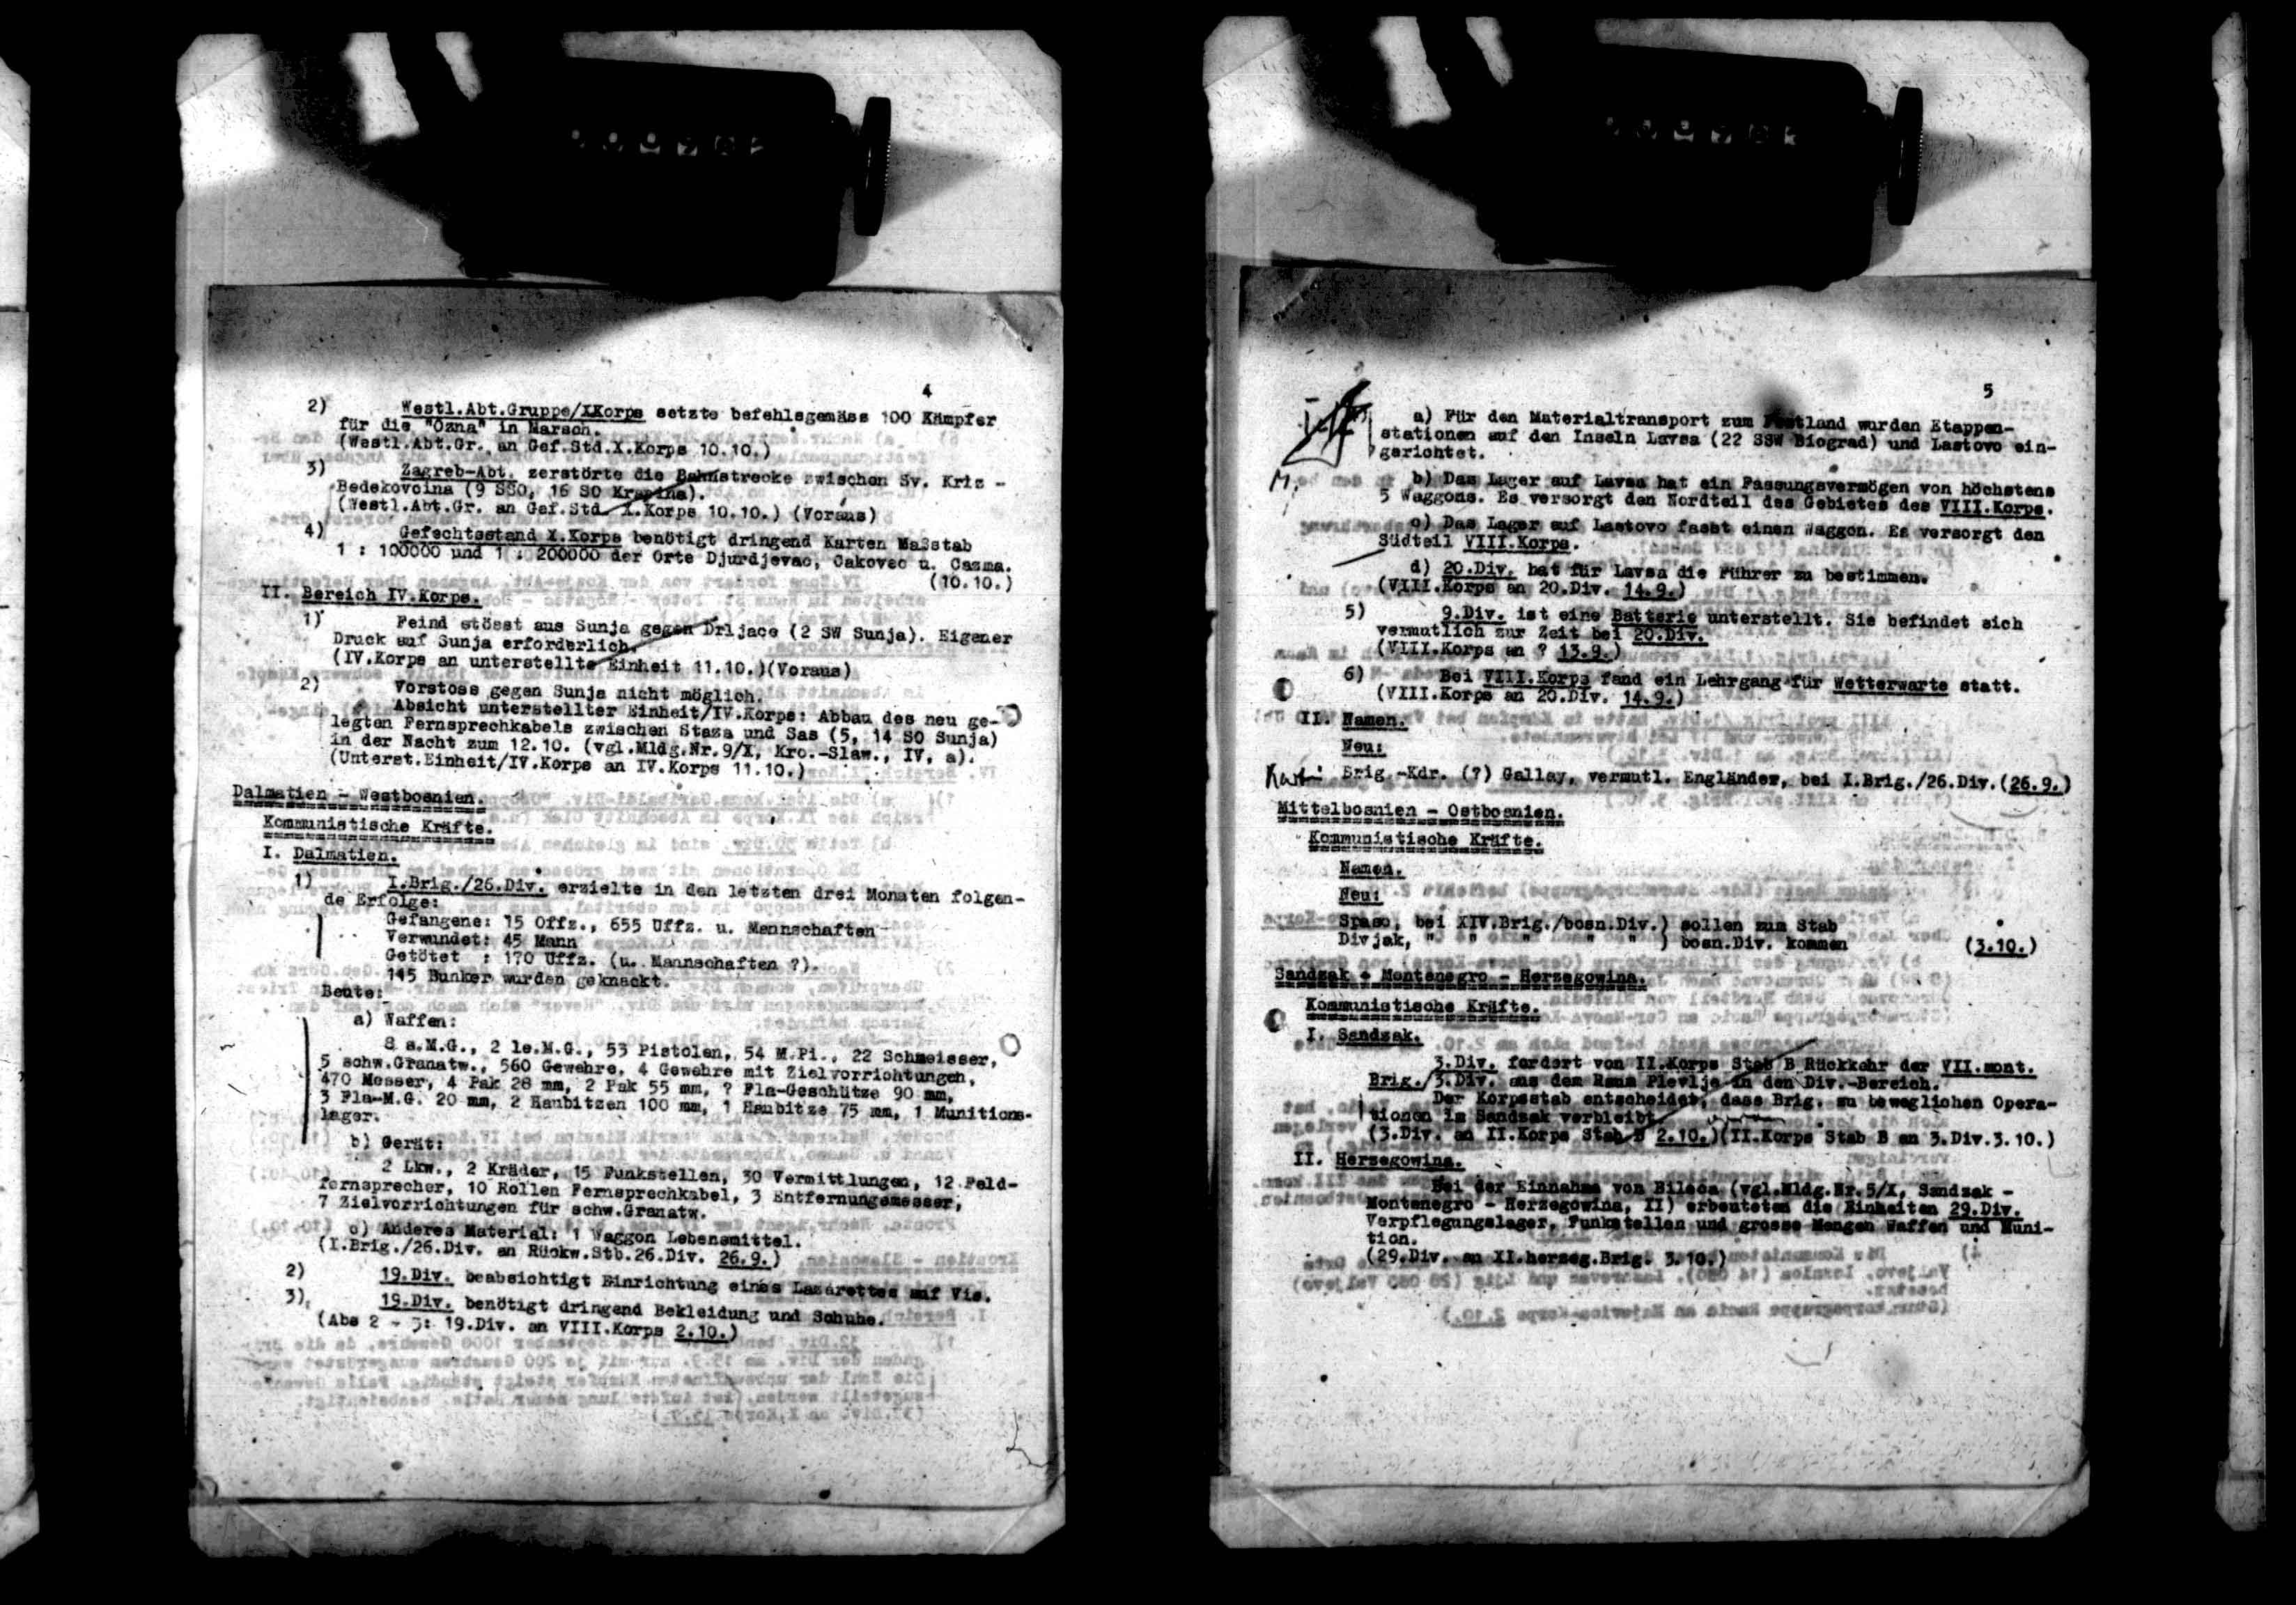 4
2) Westl.Abt.Gruppe/XKorps setzte befehlsgemäss 100 Kämpfer
für die "Ozna" in Marsch.
(Westl.Abt.Gr. an Gef.Std.X.Korps 10.10.)
3) Zagreb-Abt. zerstörte die Bahnstrecke zwischen Sv. Kriz -
Bedekovcina (9 SSO, 16 SO Krapina).
(Westl.Abt.Gr. an Gef.Std. X.Korps 10.10.) (Voraus)
4) Gefechtsstand X.Korps benötigt dringend Karten Maßstab
1 : 100000 und 1 : 200000 der Orte Djurdjevac, Cakovec u. Cazma.
(10.10.)
II. Bereich IV.Korps.
1) Feind stösst aus Sunja gegen Drljace (2 SW Sunja). Eigener
Druck auf Sunja erforderlich.
(IV.Korps an unterstellte Einheit 11.10.)(Voraus)
2) Vorstoss gegen Sunja nicht möglich.
Absicht unterstellter Einheit/IV.Korps: Abbau des neu ge-
legten Fernsprechkabels zwischen Staza und Sas (5, 14 SO Sunja)
in der Nacht zum 12.10. (vgl.Mldg.Nr.9/X, Kro.-Slaw., IV, a).
(Unterst.Einheit/IV.Korps an IV.Korps 11.10.)
Dalmatien - Westbosnien.
Kommunistische Kräfte.
I. Dalmatien.
1) I.Brig./26.Div. erzielte in den letzten drei Monaten folgen-
de Erfolge:
Gefangene: 15 Offz., 655 Uffz. u. Mannschaften
Verwundet: 45 Mann
Getötet : 170 Uffz. (u. Mannschaften ?).
145 Bunker wurden geknackt.
Beute:
a) Waffen:
8 s.M.G., 2 le.M.G., 53 Pistolen, 54 M.Pi., 22 Schmeisser,
5 schw.Granatw., 560 Gewehre, 4 Gewehre mit Zielvorrichtungen,
470 Messer, 4 Pak 28 mm, 2 Pak 55 mm, ? Fla-Geschütze 90 mm,
3 Fla-M.G. 20 mm, 2 Haubitzen 100 mm, 1 Haubitze 75 mm, 1 Munitions-
lager.
b) Gerät:
2 Lkw., 2 Kräder, 15 Funkstellen, 30 Vermittlungen, 12 Feld-
fernsprecher, 10 Rollen Fernsprechkabel, 3 Entfernungsmesser,
7 Zielvorrichtungen für schw.Granatw.
c) Anderes Material: 1 Waggon Lebensmittel.
(I.Brig./26.Div. an Rückw.Stb.26.Div. 26.9.)
2) 19.Div. beabsichtigt Einrichtung eines Lazarettes auf Vis.
3) 19.Div. benötigt dringend Bekleidung und Schuhe.
(Abs 2 - 3: 19.Div. an VIII.Korps 2.10.)
5
a) Für den Materialtransport zum Festland wurden Etappen-
stationen auf den Inseln Lavsa (22 SSW Biograd) und Lastovo ein-
gerichtet.
M.
b) Das Lager auf Lavsa hat ein Fassungsvermögen von höchstens
5 Waggons. Es versorgt den Nordteil des Gebietes des VIII.Korps.
c) Das Lager auf Lastovo fasst einen Waggon. Es versorgt den
Südteil VIII.Korps.
d) 20.Div. hat für Lavsa die Führer zu bestimmen.
(VIII.Korps an 20.Div. 14.9.)
5) 9.Div. ist eine Batterie unterstellt. Sie befindet sich
vermutlich zur Zeit bei 20.Div.
(VIII.Korps an ? 13.9.)
6) Bei VIII.Korps fand ein Lehrgang für Wetterwarte statt.
(VIII.Korps an 20.Div. 14.9.)
II. Namen.
Neu:
Brig.-Kdr. (?) Gallay, vermutl. Engländer, bei I.Brig./26.Div.(26.9.)
Mittelbosnien - Ostbosnien.
Kommunistische Kräfte.
Namen.
Neu:
Spaso, bei XIV.Brig./bosn.Div.) sollen zum Stab
Divjak, " " " " " ) bosn.Div. kommen (3.10.)
Sandzak - Montenegro - Herzegowina.
Kommunistische Kräfte.
I. Sandzak.
3.Div. fordert von II.Korps Stab B Rückkehr der VII.mont.
Brig./3.Div. aus dem Raum Plevlje in den Div.-Bereich.
Der Korpsstab entscheidet, dass Brig. zu beweglichen Opera-
tionen im Sandzak verbleibt
(3.Div. an II.Korps Stab B 2.10.)(II.Korps Stab B an 3.Div.3.10.)
II. Herzegowina.
Bei der Einnahme von Bileca (vgl.Mldg.Nr.5/X, Sandzak -
Montenegro - Herzegowina, II) erbeuteten die Einheiten 29.Div.
Verpflegungslager, Funkstellen und grosse Mengen Waffen und Muni-
tion.
(29.Div. an XI.herzeg.Brig. 3.10.)